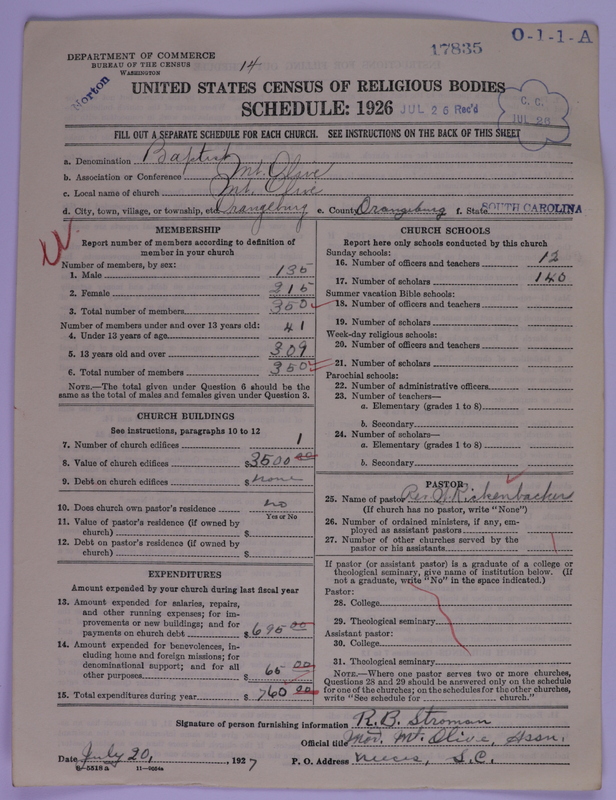 DEPARTMENT OF COMMERCE
BUREAU OF THE CENSUS
WASHINGTON
14
17835
O-1-1-A
Morton
UNITED STATES CENSUS OF RELIGIOUS BODIES
SCHEDULE: 1926
JUL 25 Rec'd
C. C.
JUL 26
FILL OUT A SEPARATE SCHEDULE FOR EACH CHURCH. SEE INSTRUCTIONS ON THE BACK OF THIS SHEET
a. Denomination Baptist
b. Association or Conference Mt. Olive
c. Local name of church Mt. Olive
d. City, town, village, or township, etc. Orangeburg e. County Orangeburg f. State SOUTH CAROLINA
MEMBERSHIP
Report number of members according to definition of
member in your church
Number of members, by sex:
1. Male 135
2. Female 215
3. Total number of members 350
Number of members under and over 13 years old:
4. Under 13 years of age 41
5. 13 years old and over 309
6. Total number of members 350
NOTE.—The total given under Question 6 should be the
same as the total of males and females given under Question 3.
CHURCH BUILDINGS
See instructions, paragraphs 10 to 12
7. Number of church edifices 1
8. Value of church edifices $3500 00
9. Debt on church edifices $ none
10. Does church own pastor's residence? no
Yes or No
11. Value of pastor's residence (if owned by
church) $
12. Debt on pastor's residence (if owned by
church) $
EXPENDITURES
Amount expended by your church during last fiscal year
13. Amount expended for salaries, repairs,
and other running expenses; for im-
provements or new buildings; and for
payments on church debt $695 00
14. Amount expended for benevolences, in-
cluding home and foreign missions; for
denominational support; and for all
other purposes $ 65 00
15. Total expenditures during year $ 760 00
CHURCH SCHOOLS
Report here only schools conducted by this church
Sunday schools:
16. Number of officers and teachers 12
17. Number of scholars 140
Summer vacation Bible schools:
18. Number of officers and teachers
19. Number of scholars
Week-day religious schools:
20. Number of officers and teachers
21. Number of scholars
Parochial schools:
22. Number of administrative officers
23. Number of teachers—
a. Elementary (grades 1 to 8)
b. Secondary
24. Number of scholars—
a. Elementary (grades 1 to 8)
b. Secondary
PASTOR
25. Name of pastor Rev. J. Rickenbacker
(If church has no pastor, write "None")
26. Number of ordained ministers, if any, em-
ployed as assistant pastors
27. Number of other churches served by the
pastor or his assistants
If pastor (or assistant pastor) is a graduate of a college or
theological seminary, give name of institution below. (If
not a graduate, write "No" in the space indicated.)
Pastor:
28. College
29. Theological seminary
Assistant pastor:
30. College
31. Theological seminary
NOTE.—Where one pastor serves two or more churches,
Questions 28 and 29 should be answered only on the schedule
for one of the churches; on the schedules for the other churches,
write "See schedule for church."
Signature of person furnishing information R. B. Stroman
Official title Mod. Mt. Olive, Assn.
Date July 20, 1927 P. O. Address Neeces, S.C.
8-5518a 11-9024a